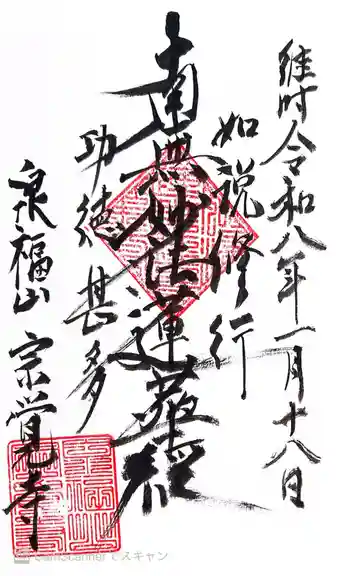 維時令和八年一月十八日
如説修行
南無妙法蓮華経
功徳甚多
泉福山 宗覚寺
CamScanner でスキャン